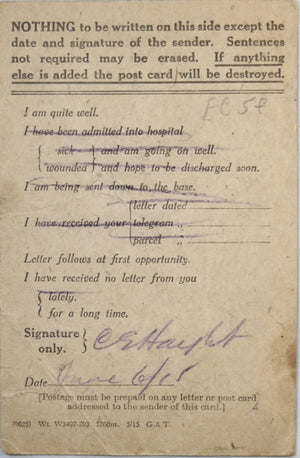 NOTHING to be written on this side except the
date and signature of the sender. Sentences
not required may be erased. If anything
else is added the post card will be destroyed.
I am quite well.
I have been admitted into hospital
sick and am going on well.
wounded and hope to be discharged soon.
I am being sent down to the base.
letter dated
I have received your telegram „
parcel „
Letter follows at first opportunity.
I have received no letter from you
lately.
for a long time.
Signature only. C E Haight
Date June 6/15
[Postage must be prepaid on any letter or post card
addressed to the sender of this card.]
(9625) Wt. W3497-293 1760m. 3/15 G.A.T.